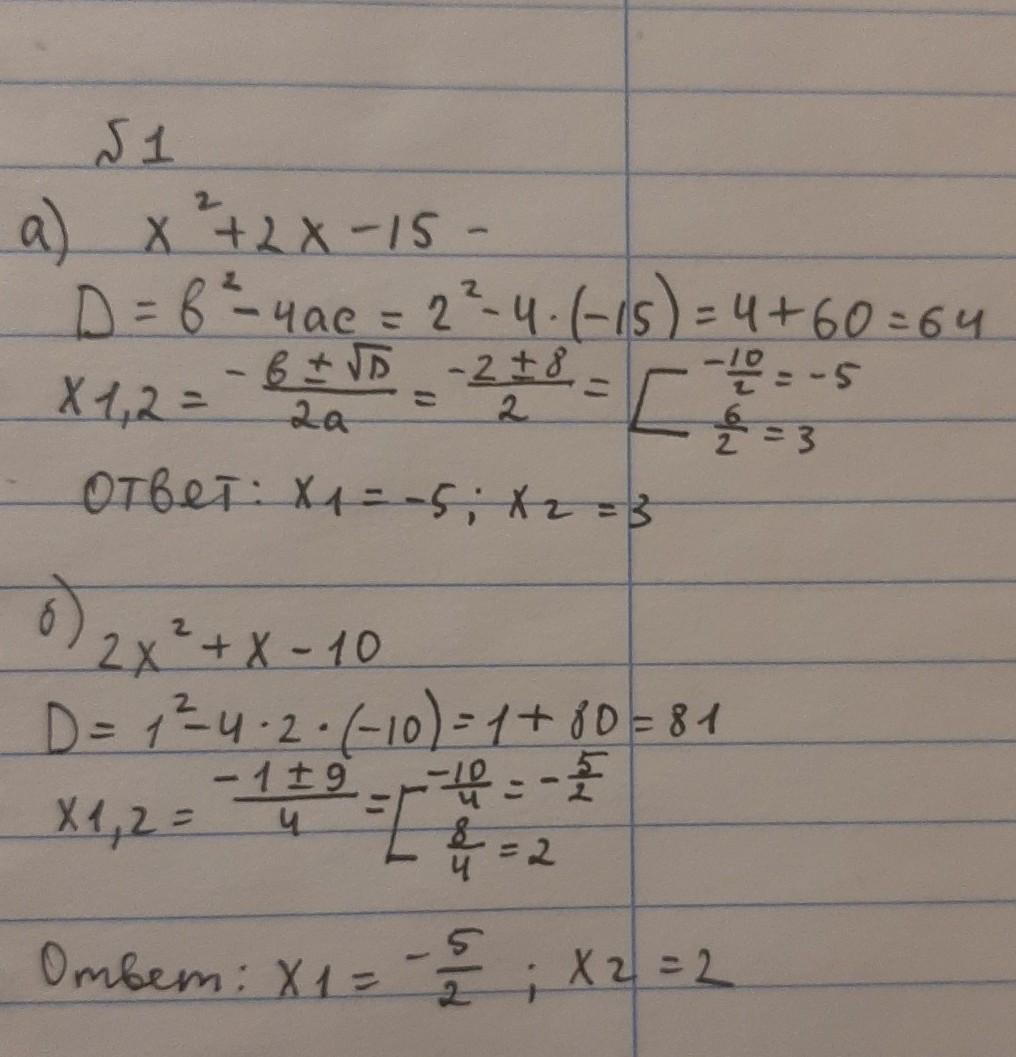 №1
а) x² + 2x - 15 -
D = b² - 4ac = 2² - 4 · (-15) = 4 + 60 = 64
x1,2 = (-b ± √D)/2a = (-2 ± 8)/2 = [ -10/2 = -5
6/2 = 3
ответ: x1 = -5; x2 = 3
б) 2x² + x - 10
D = 1² - 4 · 2 · (-10) = 1 + 80 = 81
x1,2 = (-1 ± 9)/4 = [ -10/4 = -5/2
8/4 = 2
Ответ: x1 = -5/2 ; x2 = 2